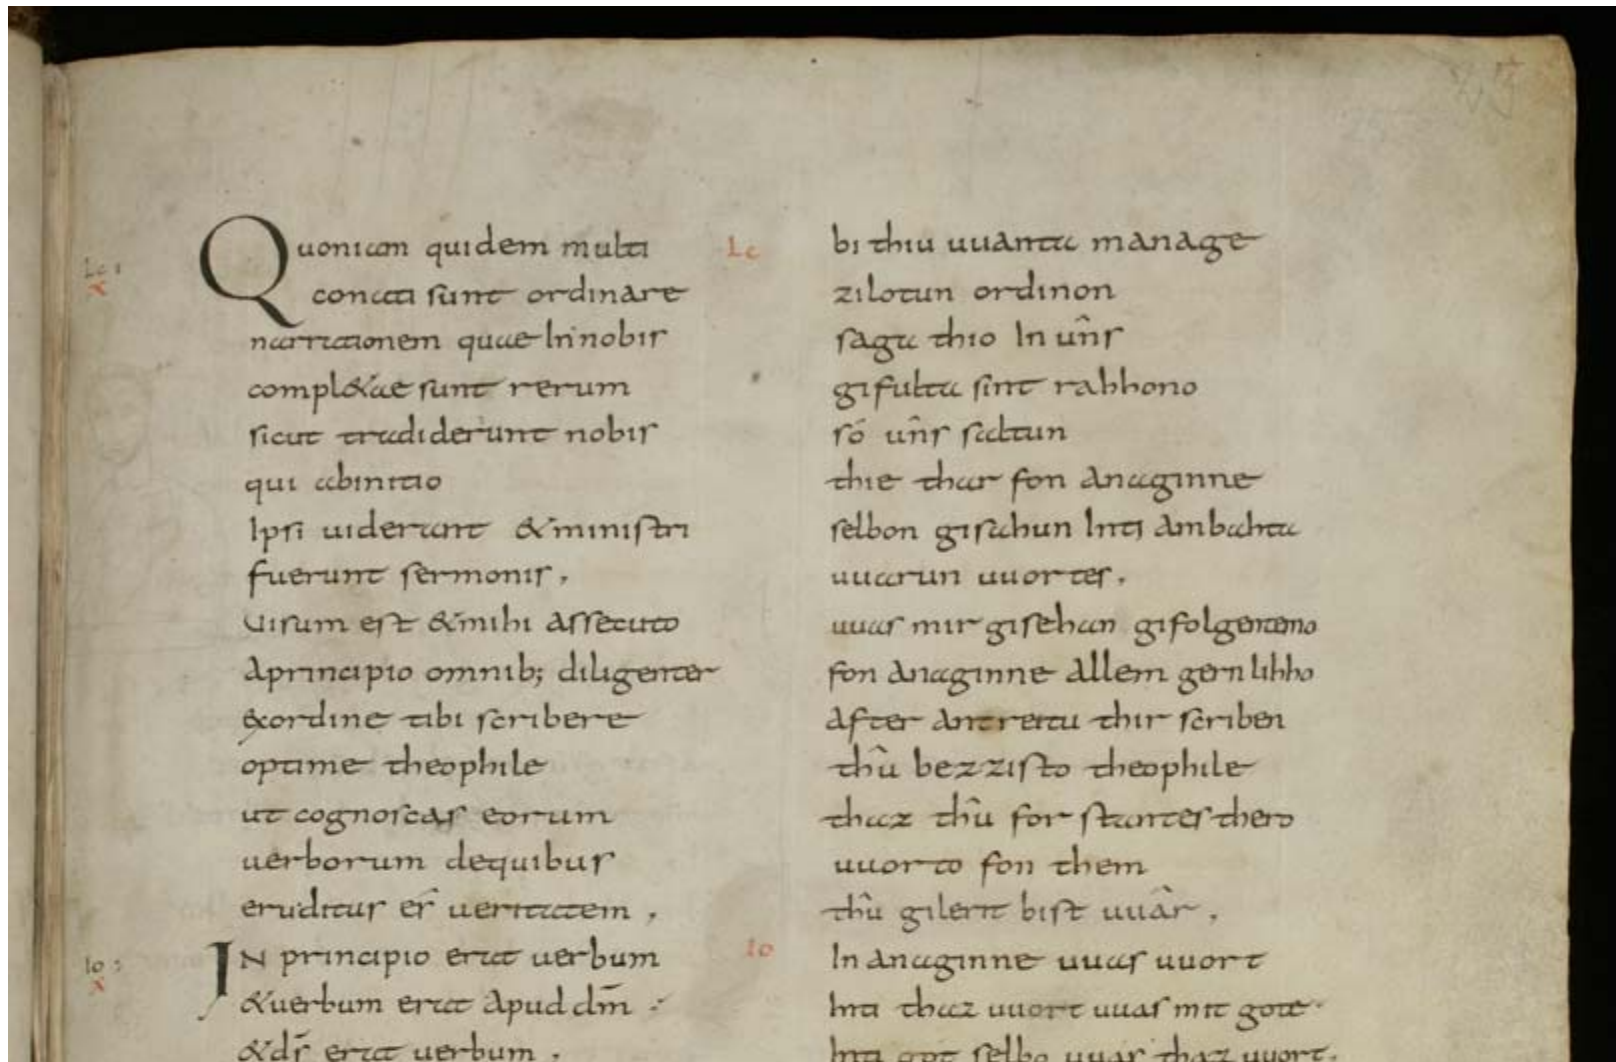 Lc :
x
Quoniam quidem multi
conati sunt ordinare
narrationem quae In nobis
compl&ae sunt rerum
sicut tradiderunt nobis
qui abinitio
Ipsi uiderunt &ministri
fuerunt sermonis,
Uisum est &mihi assecuto
aprincipio omnib; diligenter
exordine tibi scribere
optime theophile
ut cognoscas eorum
uerborum dequibus
eruditus es̄ ueritatem,
Io :
x
IN principio erat uerbum
&uerbum erat apud dm̄ :
&ds̄ erat uerbum.
Lc
bi thiu uuanta manage
zilotun ordinon
saga thio In ûns
gifulta sint rahhono
só ûns saltun
thie thar fon anaginne
selbon gisahun Inti ambahta
uuarun uuortes,
uuas mir gisehan gifolgentemo
fon anaginne allem gernlihho
after antreitu thir scriben
thû bezzisto theophile
thaz thû forstantes thero
uuorto fon them
thû gilerit bist uuâr,
Io
In anaginne uuas uuort
Inti thaz uuort uuas mit gote
Inti got selbo uuas thaz uuort.